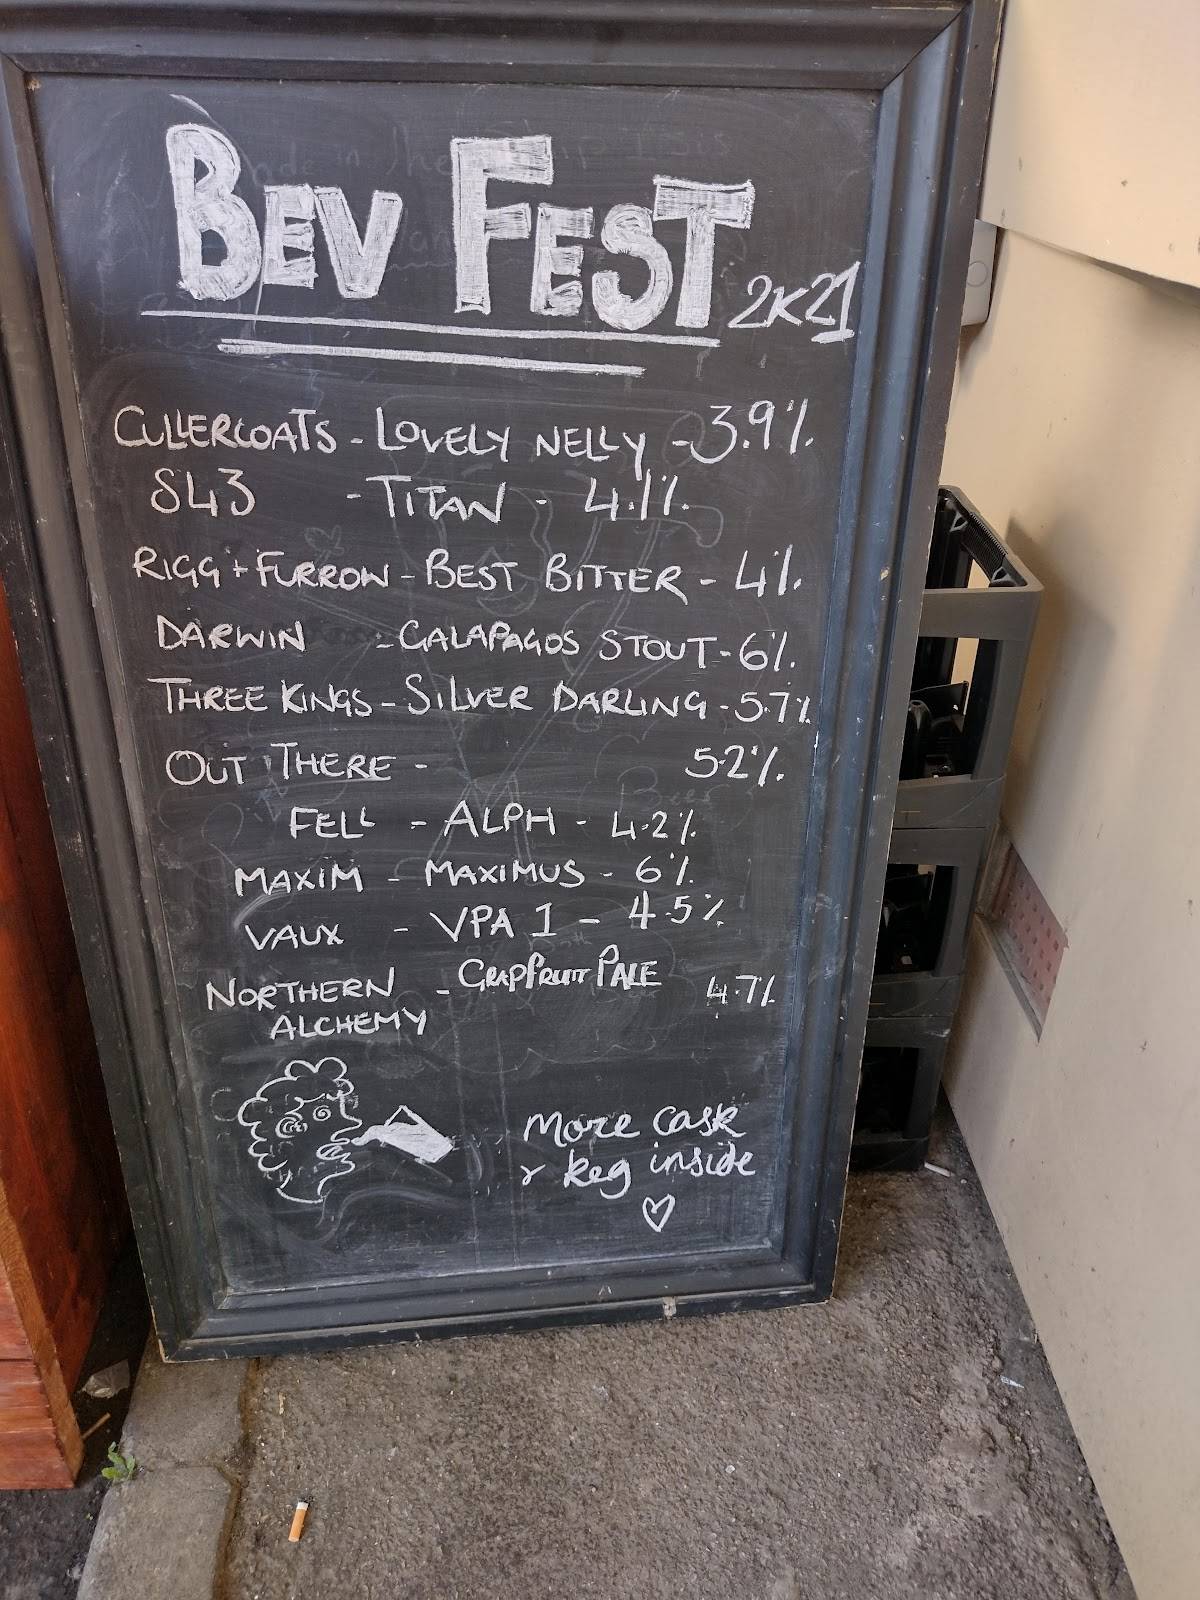 BEV FEST 2K21
CULLERCOATS - LOVELY NELLY - 3.9%
S43 - TITAN - 4.1%
RIGG + FURROW - BEST BITTER - 4%
DARWIN - GALAPAGOS STOUT - 6%
THREE KINGS - SILVER DARLING - 5.7%
OUT THERE - 5.2%
FELL - ALPH - 4.2%
MAXIM - MAXIMUS - 6%
VAUX - VPA 1 - 4.5%
NORTHERN - GRAPFRUIT PALE 4.7%
ALCHEMY
more cask
& keg inside